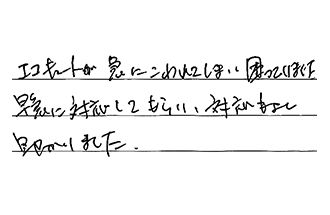 エコキュートが急にこわれてしまい困っていました
早急に対応してもらい、対応もよし
助かりました.